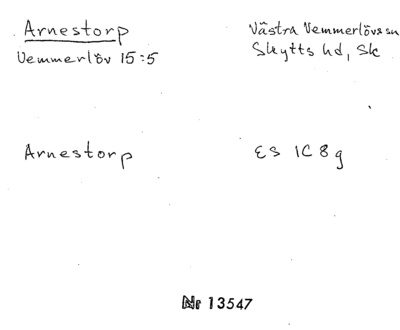 Arnestorp
Västra Vemmerlövs sn
Vemmerlöv 15:5
Skytts hd, Sk
Arnestorp
ES 1C 8g
Nr 13547